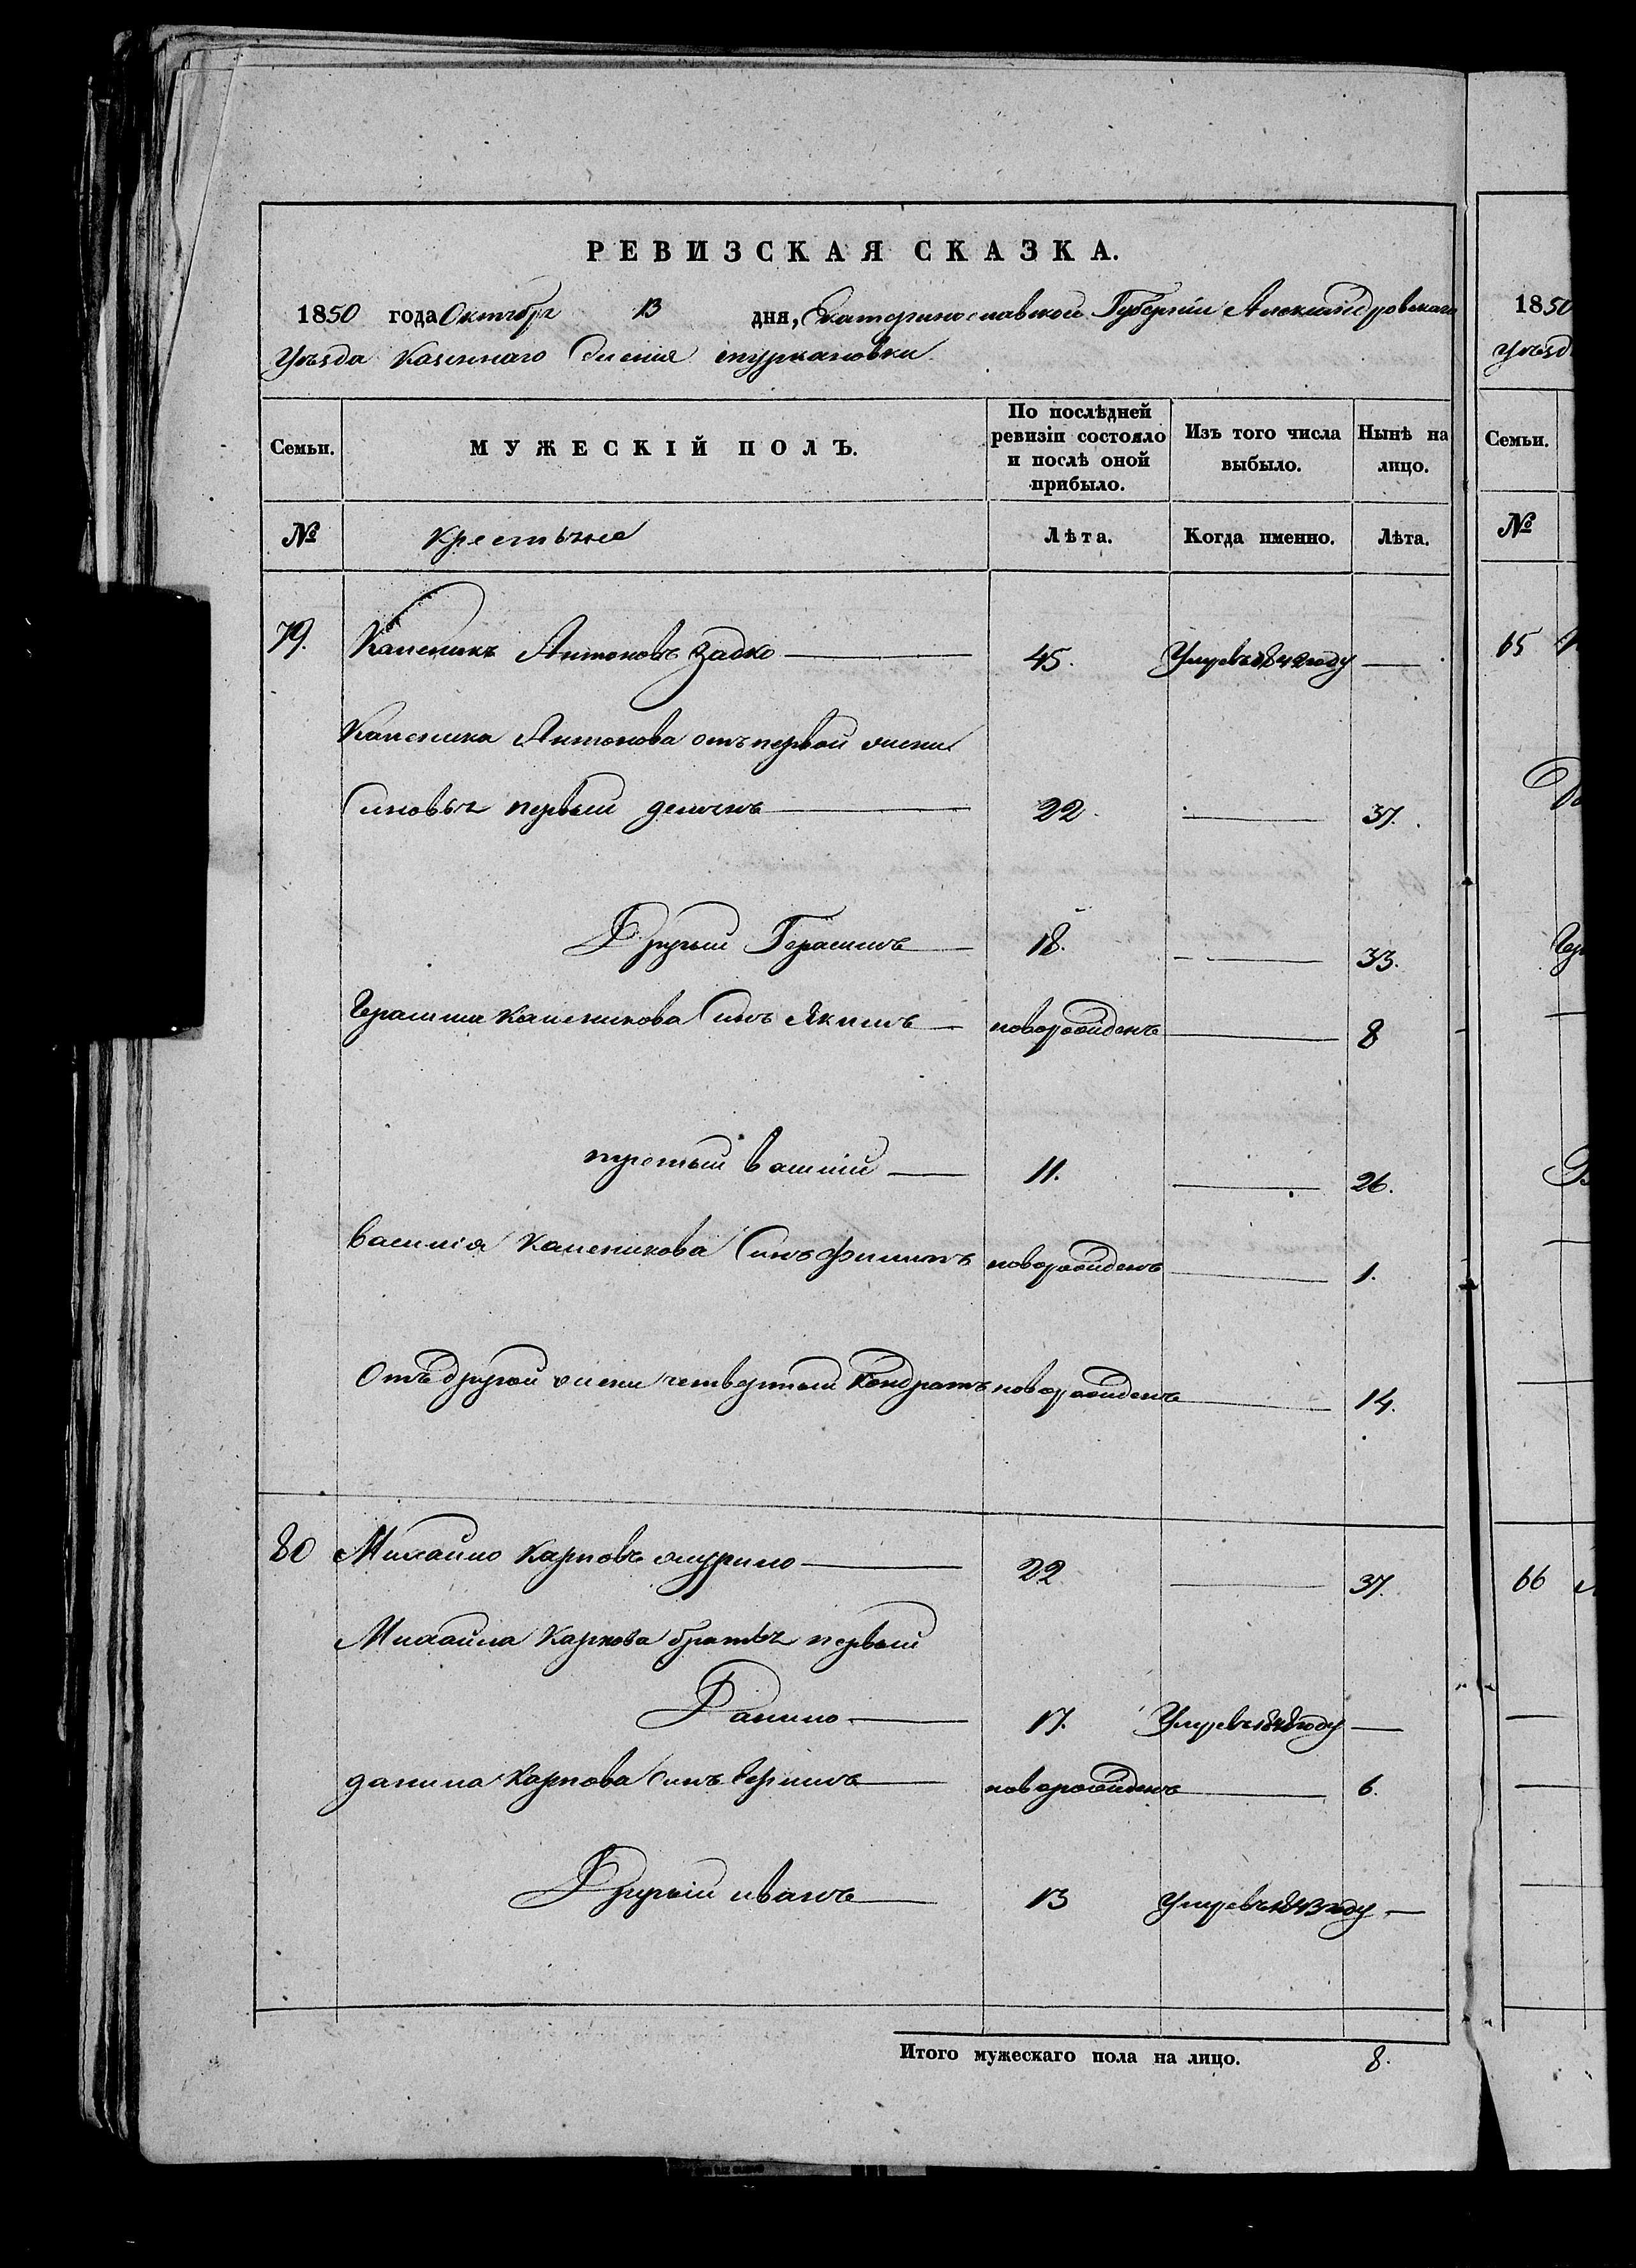 РЕВИЗСКАЯ СКАЗКА.
1850 года Октября 13 дня, Екатеринославской Губерніи Александровскаго
Уѣзда Казеннаго Сиенія туркановки
Семьи. МУЖЕСКІЙ ПОЛЪ. По послѣдней ревизіи состояло и послѣ оной прибыло. Изъ того числа выбыло. Нынѣ на лицо.
№ крестьяне Лѣта. Когда именно. Лѣта.
79. Каленикъ Антоновъ Задко 45. Умре въ 1842 году
Каленика Антонова отъ первой жени
Синовья первый демянъ 22. 37.
Другий Герасимъ 18. 33.
Герасима каленикова Синъ Якимъ новорожденъ 8
третый василій 11. 26.
василія каленикова Синъ филипъ новорожденъ 1.
Отъ другой жени четвертый Кондратъ новорожденъ 14.
80 Михайло Карповъ 22 37.
Михайла Карпова братья первый
Данило 17. Умре въ 1848 году
данила Карпова Синъ новорожденъ 6.
Другій иванъ 13 Умре въ 1843 году
Итого мужескаго пола на лицо. 8.
1850
Уѣзд
Семьи.
№
65
66